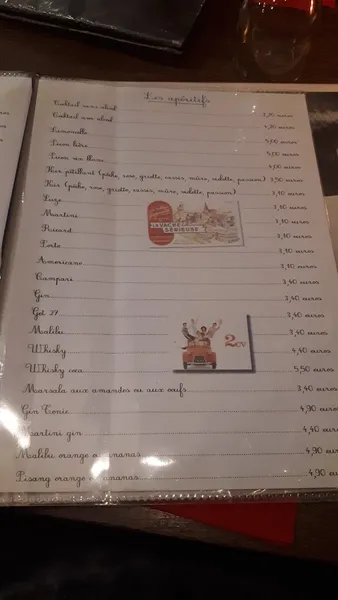 Les apéritifs
Cocktail sans alcool 3,20 euros
Cocktail avec alcool
Limoncello 5,00 euros
Picon bière 5,00 euros
Picon vin blanc 4,00 euros
Kir pétillant (pêche, rose, griotte, cassis, mûre, violette, passion) 3,50 euros
Kir (pêche, rose, griotte, cassis, mûre, violette, passion) 3,10 euros
Suze 3,10 euros
Martini 3,10 euros
Ricard 3,10 euros
Porto 3,10 euros
Americano 3,10 euros
Campari 3,40 euros
Gin 3,40 euros
Get 27 3,40 euros
Malibu 3,40 euros
Whisky 4,40 euros
Whisky coca 5,50 euros
Marsala aux amandes ou aux œufs 3,40 euros
Gin Tonic 4,90 euros
Martini gin 4,40 euro
Malibu orange ou ananas 4,90 euro
Pisang orange ou ananas 4,90 eu
LA VACHE
SERIEUSE
2CV